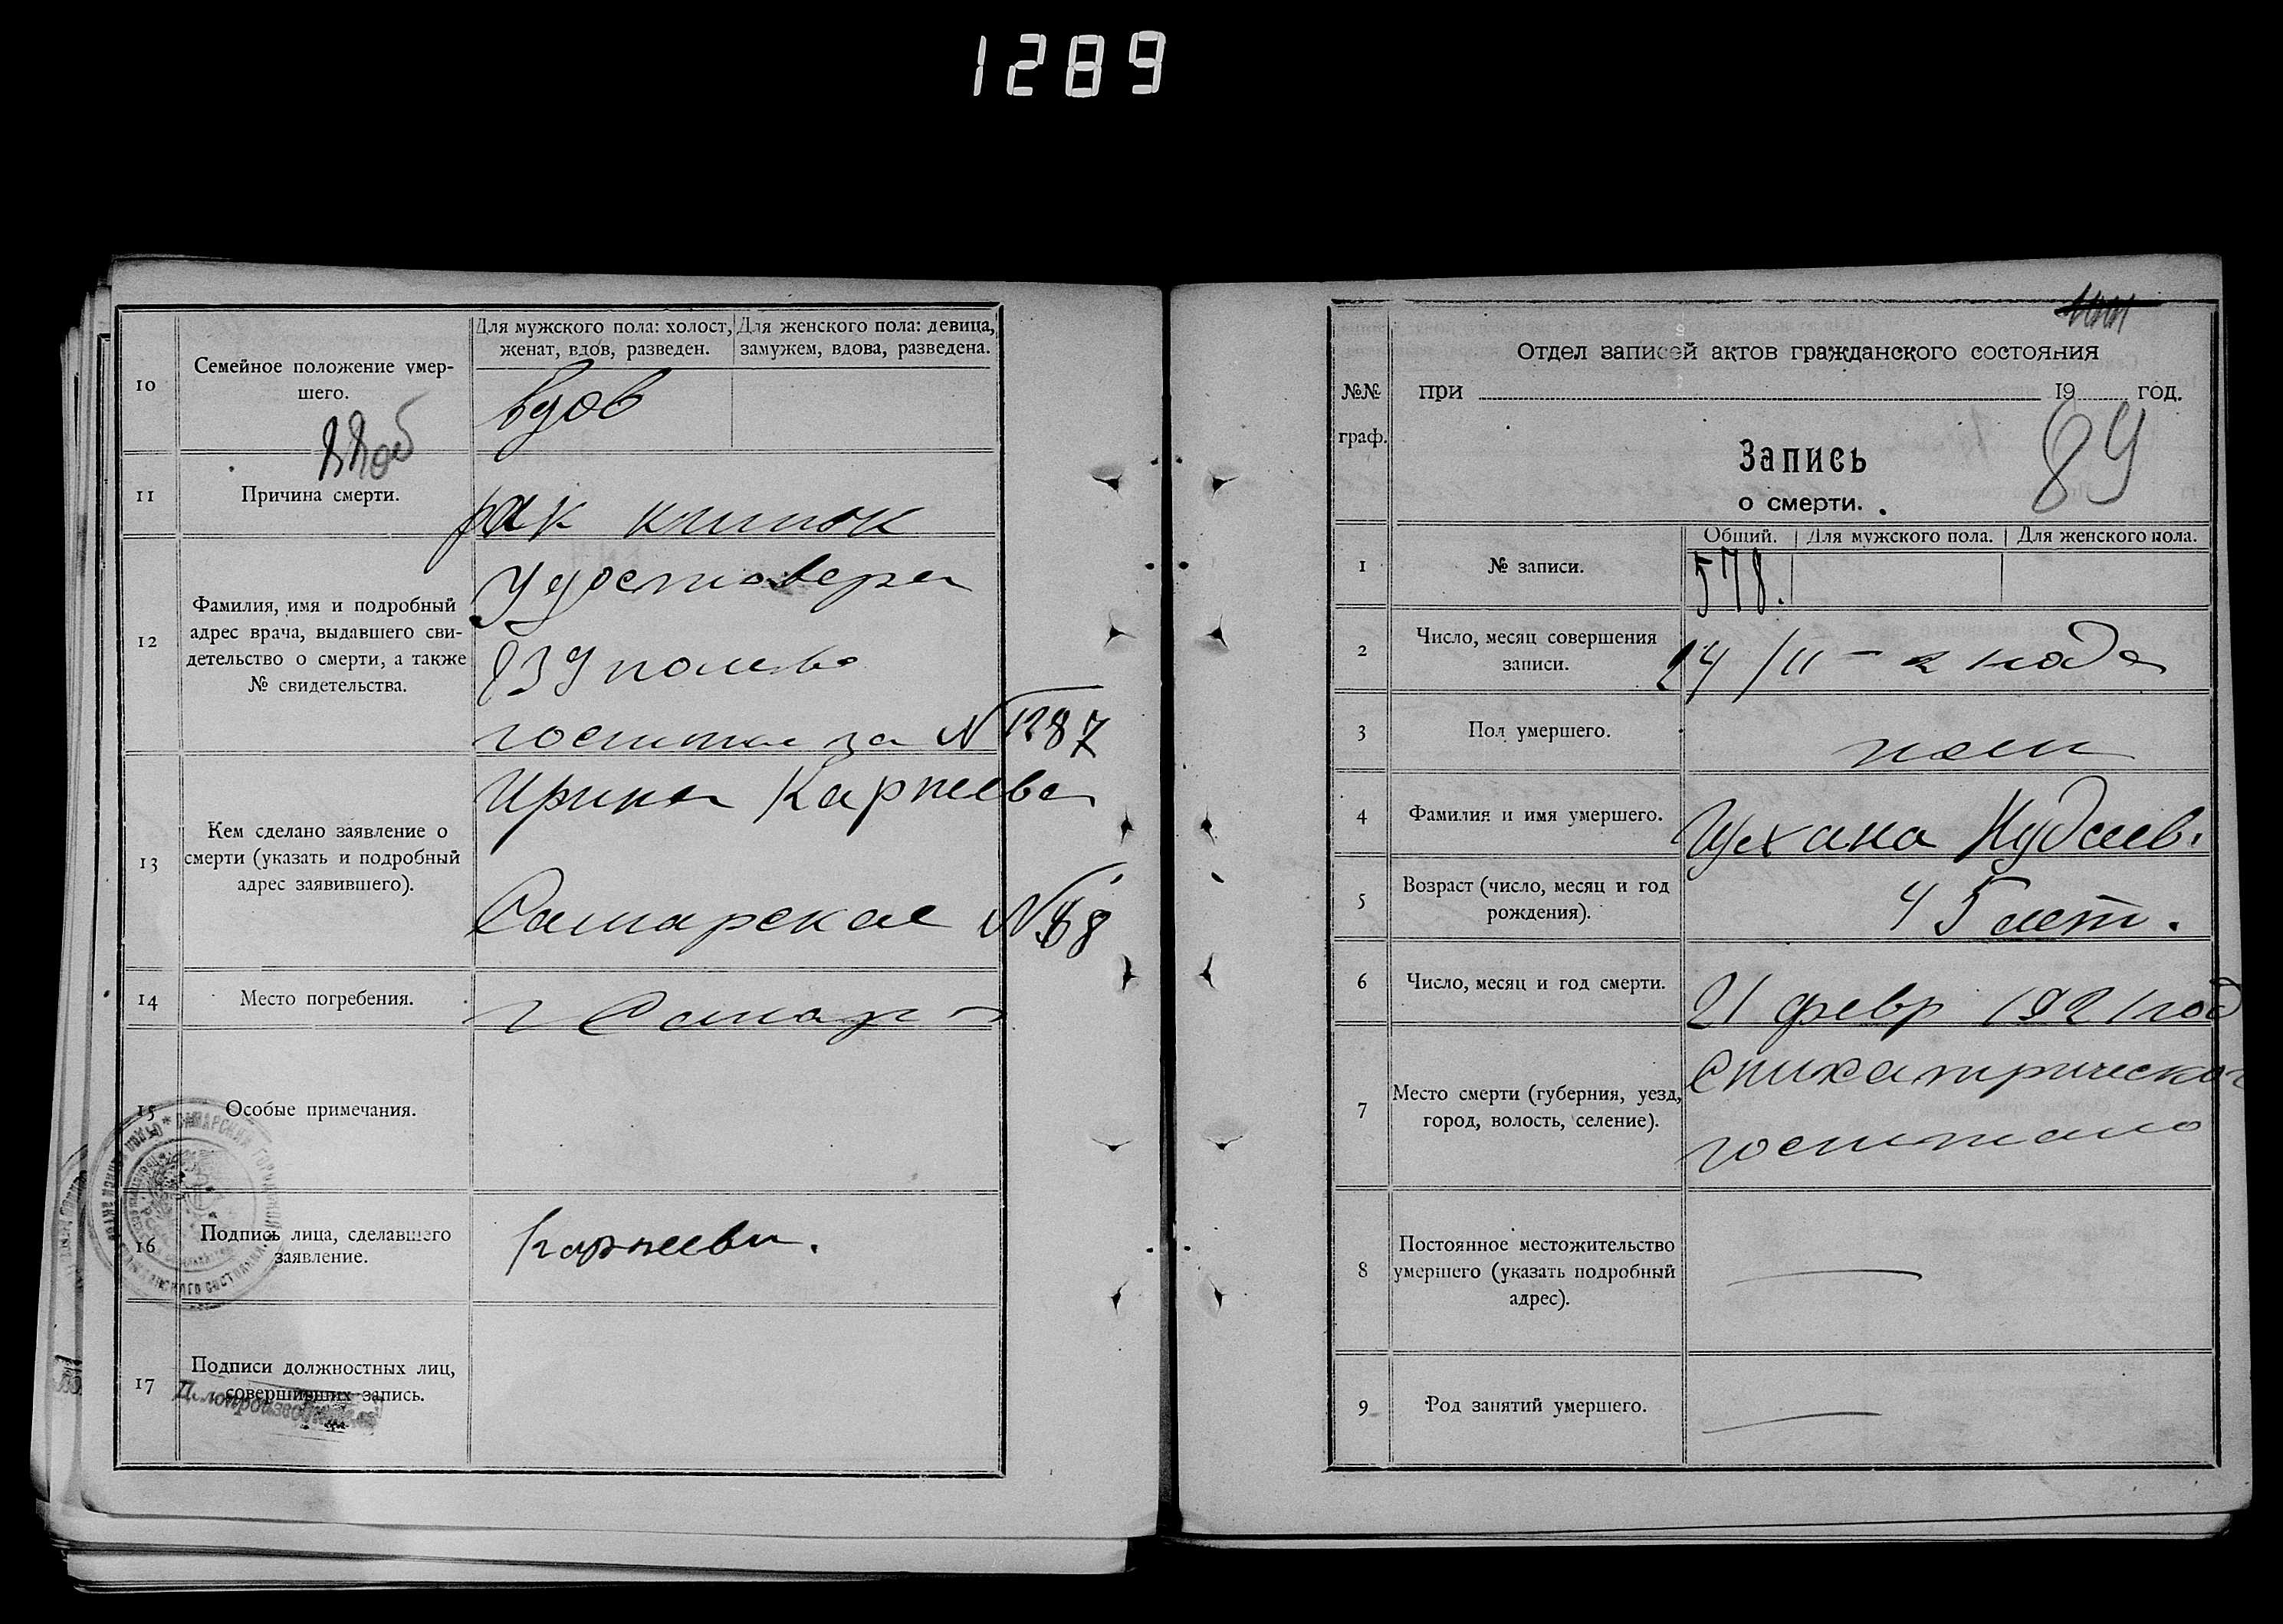 1289
10
Семейное положение умер-
шего.
Для мужского пола: холост, женат, вдов, разведен.
Для женского пола: девица, замужем, вдова, разведена.
вдов
11
Причина смерти.
рак кишок
12
Фамилия, имя и подробный
адрес врача, выдавшего сви-
детельство о смерти, а также
№ свидетельства.
Удостовере
839 полево
госпитал за № 1287
13
Кем сделано заявление о
смерти (указать и подробный
адрес заявившего).
Ирина Карпеева
Самарская №
14
Место погребения.
г Самар
15
Особые примечания.
16
Подпись лица, сделавшего
заявление.
Карпеева.
17
Подписи должностных лиц,
совершивших запись.
Делопроизводитель
№№
граф.
Отдел записей актов гражданского состояния
при 19 год.
89
Запись
о смерти.
1
№ записи.
Общий. Для мужского пола. Для женского пола.
578.
2
Число, месяц совершения
записи.
24/II - 21 года
3
Пол умершего.
4
Фамилия и имя умершего.
5
Возраст (число, месяц и год
рождения).
45 лет.
6
Число, месяц и год смерти.
21 февр 1921 год
7
Место смерти (губерния, уезд,
город, волость, селение).
8
Постоянное местожительство
умершего (указать подробный
адрес).
9
Род занятий умершего.